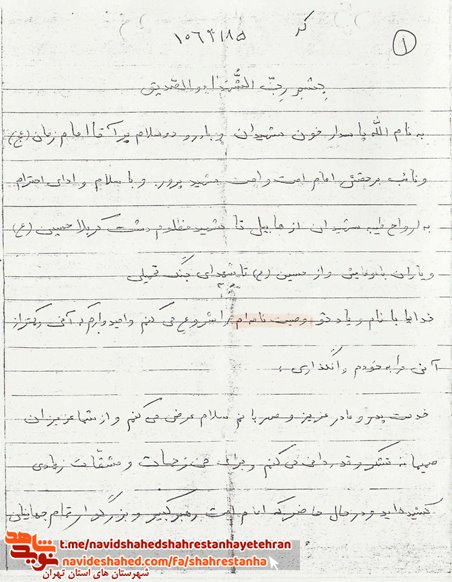 ۱
کد ۱۰۵۶۹۱۸۵
بسم رب الشهداء و الصدیقین
به نام الله پاسدار خون شهیدان و با درود و سلام بر آقا امام زمان (عج)
و نائب برحقش امام امت و امت شهید پرور و با سلام و ادای احترام
به ارواح طیبه شهیدان از هابیل تا شهید مظلوم دشت کربلا حسین (ع)
و یاران باوفایش و از حسین (ع) تا شهدای جنگ تحمیلی
خدایا با نام و یاد تو وصیت نامه ام را شروع می کنم و امیدوارم که آنی و کمتر از
آنی مرا به خودم وانگذاری.
خدمت پدر و مادر عزیز و مهربانم سلام عرض می کنم و از شما عزیزان
صمیمانه تشکر و قدردانی می کنم برای من زحمات و مشقات زیادی
کشیده اید و در حال حاضر که امام امت رهبر کبیر و بزرگوار تمام جهانیان
شاهد
نوید
t.me/navidshahedshahrestanhayetehran
navideshahed.com/fa/shahrestanha
شهرستان های استان تهران